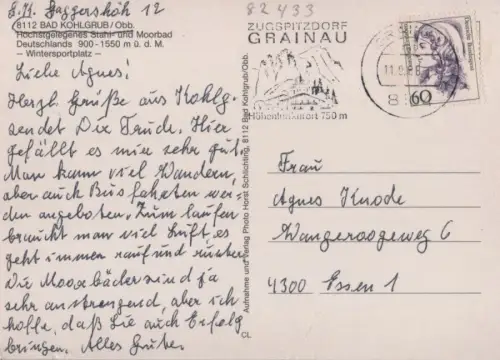 82433
8112 BAD KOHLGRUB/Obb.
Hochstgelegenes Stahl- und Moorbad
Deutschlands 900-1550 m ü. d. M.
– Wintersportplatz –
Liebe Agnes!
Herzl. Grüße aus Kohlg.
sendet Dir Trude. Hier
gefällt es mir sehr gut.
Man kann viel Wandern,
aber auch Busfahrten wer-
den angeboten. Zum laufen
braucht man viel Luft, es
geht immer rauf und runter.
Die Moorbäder sind ja
sehr anstrengend, aber ich
hoffe, daß Sie auch Erfolg
bringen. Alles Gute.
Aufnahme und Verlag Photo Horst Schlichting, 8112 Bad Kohlgrub/Obb.
CL
ZUGSPITZDORF
GRAINAU
Höhenluftkurort 750 m
60
Frau
Agnes Knode
Wangeroogeweg 6
4300 Essen 1